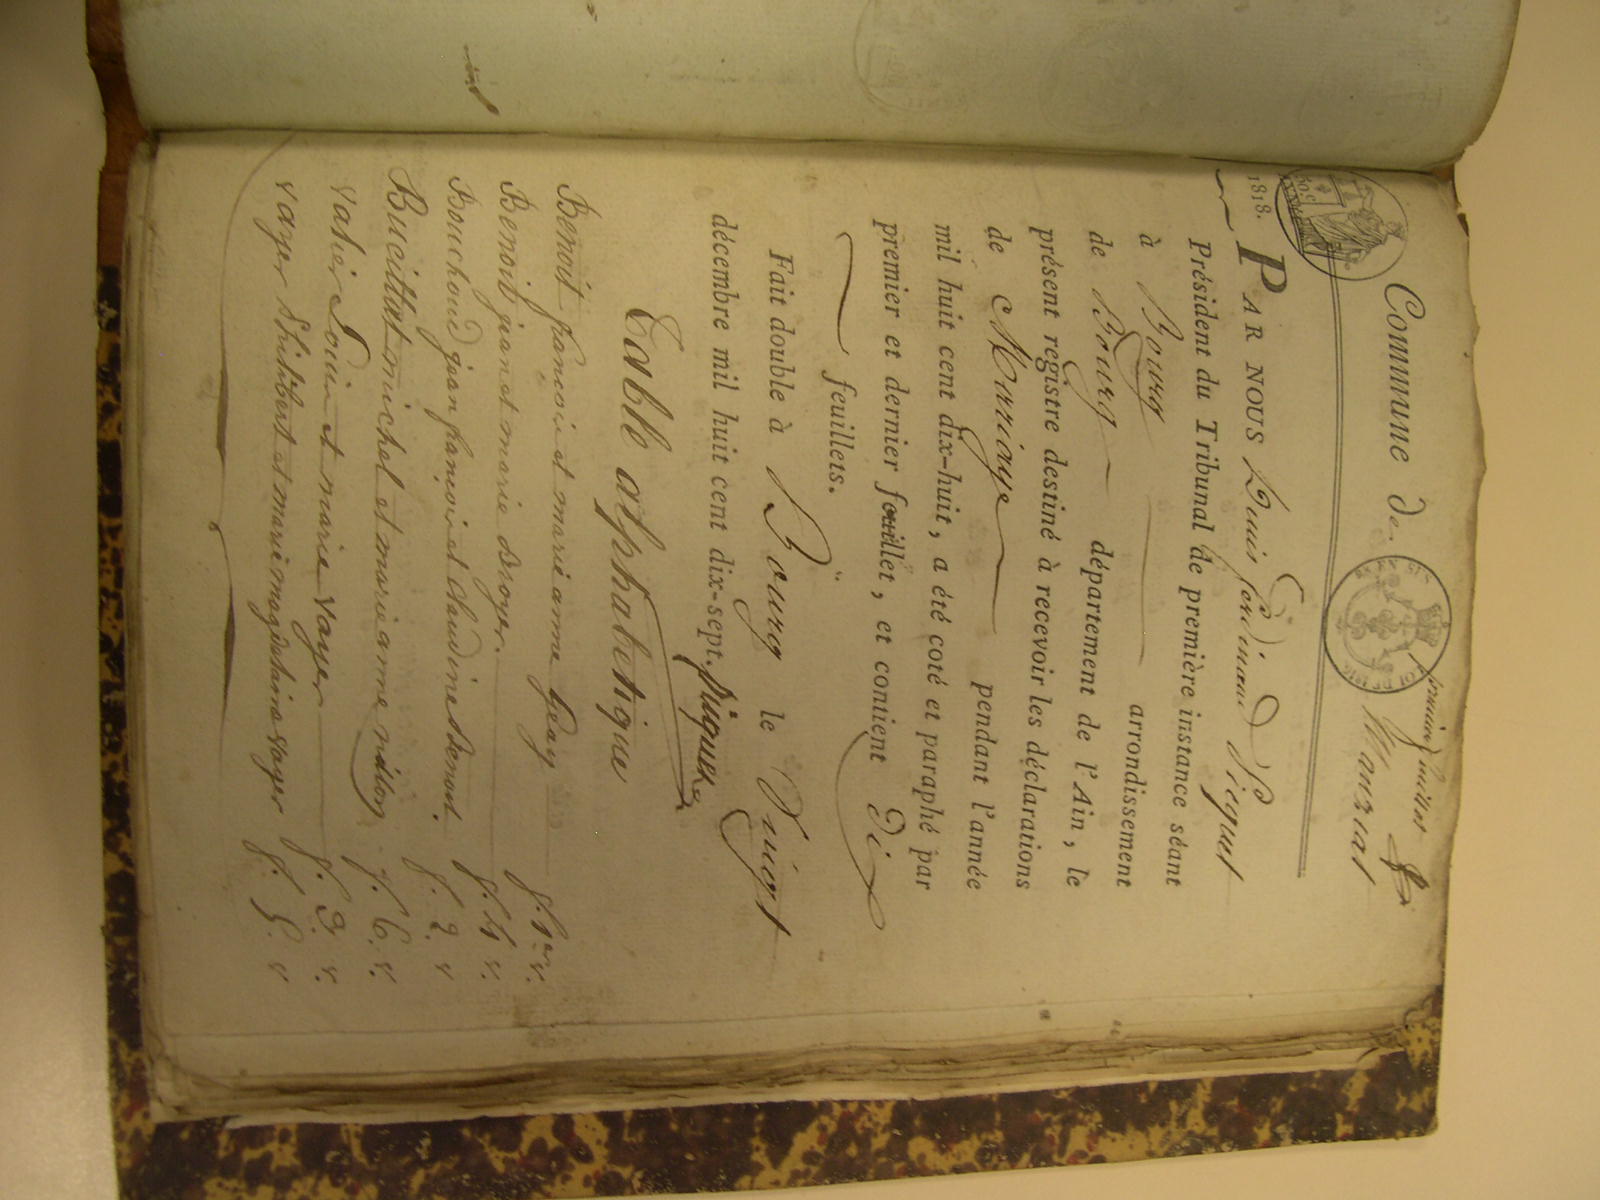 premier feuillet
Commune de Manziat
1818.
PAR NOUS Louis ferdinand Piquet
Président du Tribunal de première instance séant
à Bourg arrondissement
de Bourg département de l'Ain, le
présent registre destiné à recevoir les déclarations
de Mariage pendant l'année
mil huit cent dix-huit, a été coté et paraphé par
premier et dernier feuillet, et contient Dix
feuillets.
Fait double à Bourg le Vingt
décembre mil huit cent dix-sept. Piquet
Table alphabetique
Benoit francois et marie anne Geay f. 1er v.
Benoit jean et marie Broyer. f. 4 v.
Bouchoud jean francois et claudine Benoit. f. 2. v
Bucillat michel et marie anne f. 6. v.
Catin Louis et marie Vayer f. 9. v.
Vayer Philibert et marie magdelaine Vayer f. 5. v